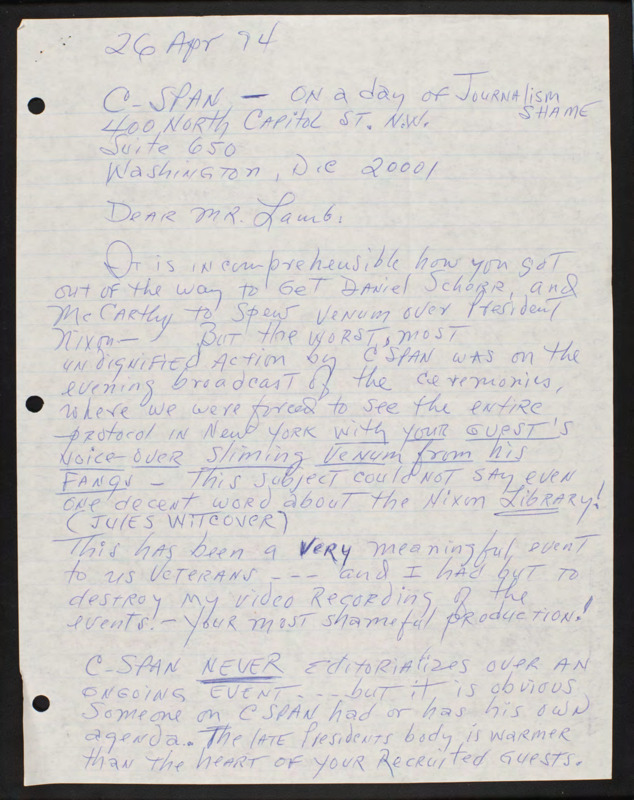 26 Apr 94
C-SPAN — ON a day of JOURNAlism
SHAME
400 NORTH CAPITOL ST. N.W.
Suite 650
Washington, D.C 20001
DEAR MR. Lamb:
It is incomprehensible how you got
out of the way to GET DANiel Schorr, and
McCarthy to spew VENUM over President
Nixon — But the WORST, most
UNDIGNIFIED Action by CSPAN WAS on the
evening broadcast of the ceremonies,
where we were forced to see the entire
protocol IN New YORK with your GUEST'S
VOICE-OVER Sliming Venum from his
FANGS — This subject could NOT SAY even
ONE decent word about the Nixon Library!
(JULES WITCOVER)
This has been a VERY meaningful event
to us VETERANS --- and I had got TO
destroy My video Recording of the
events! — Your most shameful production!
C-SPAN NEVER Editorializes over AN
ONGOING EVENT --- but it is obvious
Someone on CSPAN had or has his own
agenda.. The LATE Presidents body is WARMER
than the HEART OF YOUR Recruited Guests.